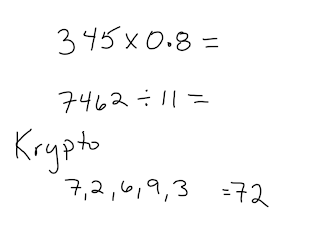 345 × 0.8 =
7462 ÷ 11 =
Krypto
7, 2, 6, 9, 3 = 72